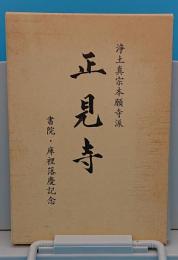 浄土真宗本願寺派
正見寺
書院・庫裡落慶記念